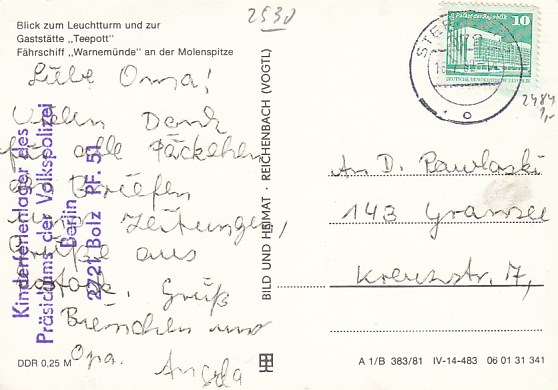 Blick zum Leuchtturm und zur
Gaststätte „Teepott"
Fährschiff „Warnemünde" an der Molenspitze
2530
Liebe Oma!
Vielen Dank
für alle Päckchen
Briefen
und Zeitungen,
Grüße aus
Gruß
und
Opa. Angela
Kinderferienlager des
Präsidiums der Volkspolizei
Berlin
2721 Bolz PF. 51
DDR 0,25 M
BILD UND HEIMAT · REICHENBACH (VOGTL)
Palast der Republik 10
DEUTSCHE DEMOKRATISCHE REPUBLIK
STER
2484
1,-
An D. Pawlaski
143 Gransee
Kreuzstr. 7,
A 1/B 383/81 IV-14-483 06 01 31 341